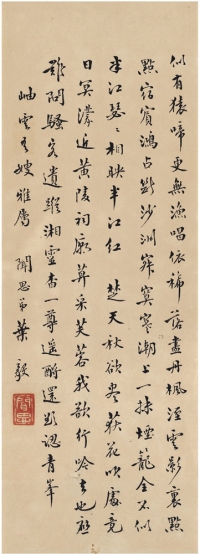 似有猿啼更無漁唱依稀落盡丹楓溼雲影裏點
點宿賓鴻占斷沙洲寂寞寒潮上一抹煙籠全不似
半江瑟瑟相映半江紅 楚天秋欲盡荻花吹處竟
日冥濛近黃陵祠廟莫采芙蓉我欲行吟去也應
難問騷客遺蹤湘靈杳一尊遙酹還欲認青峯
岫雲嫂雅屬 聞思弟葉毅